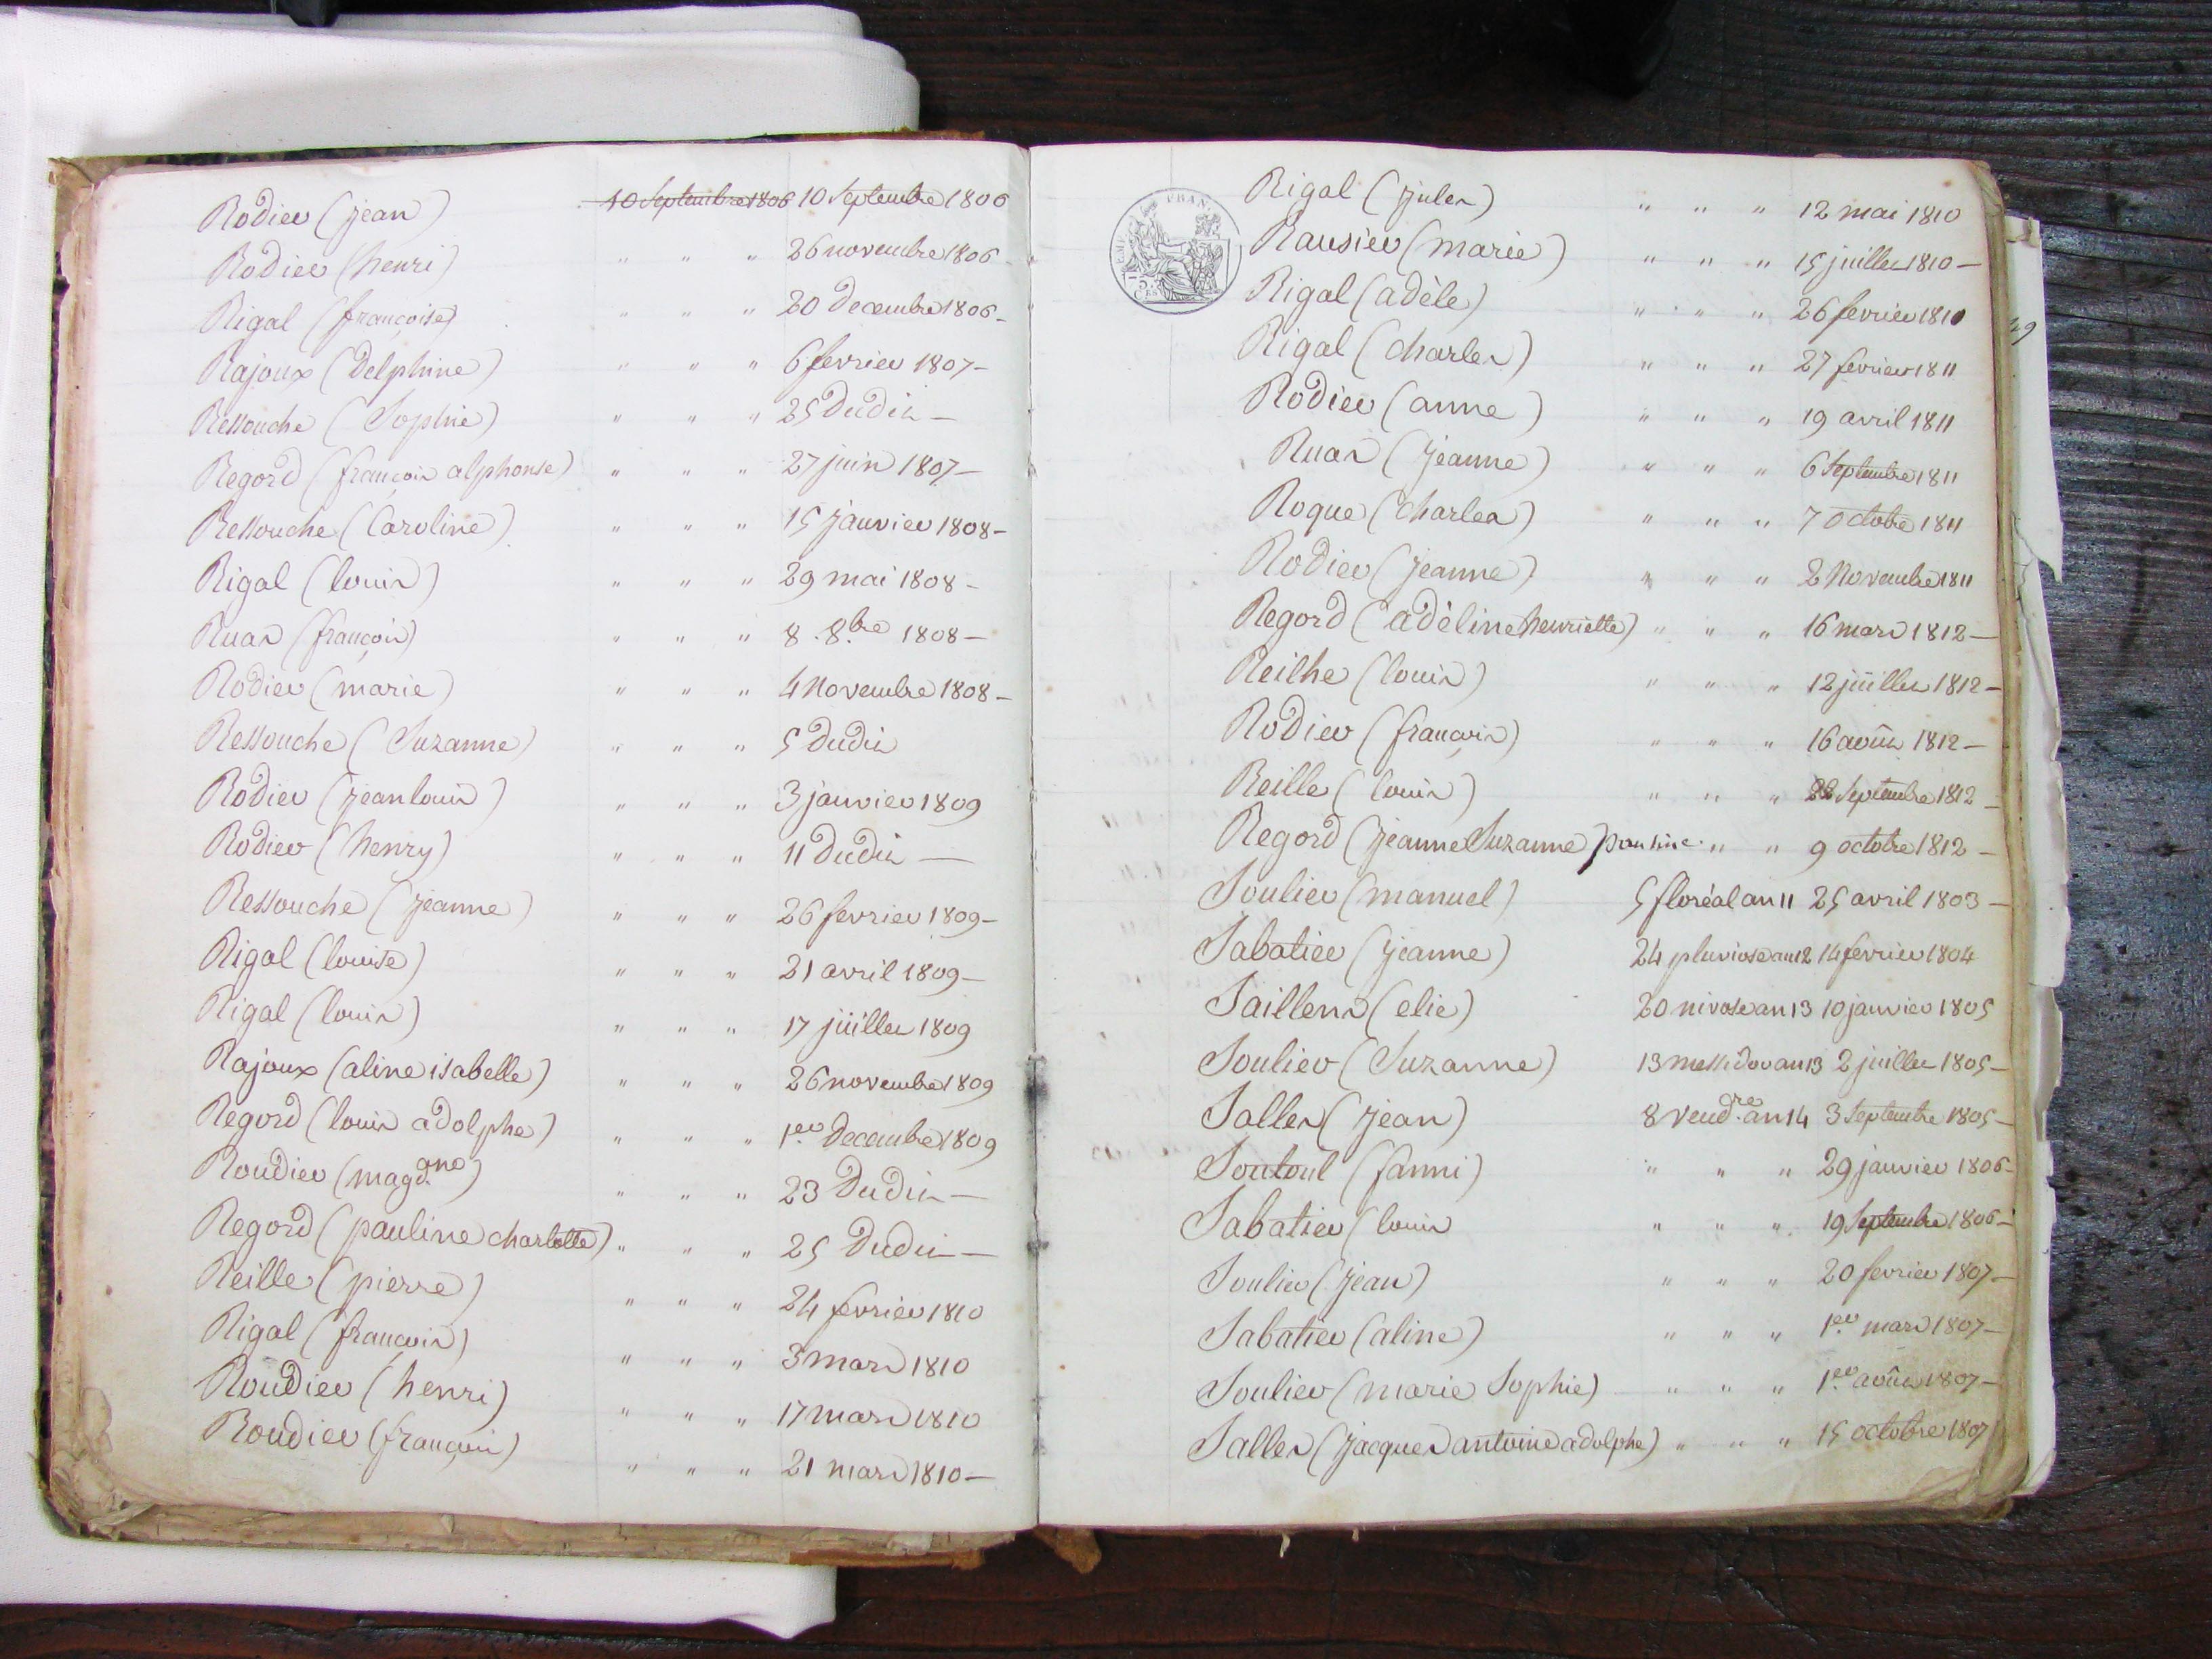 Rodier (jean) 10 Septembre 1806 10 Septembre 1806
Rodier (henri) " " " 26 novembre 1806
Rigal (françoise) " " " 20 Decembre 1806 -
Rajoux (Delphine) " " " 6 fevrier 1807 -
Ressouche (Sophie) " " " 25 Dudit -
Regord (françois alphonse) " " " 27 juin 1807 -
Ressouche (Caroline) " " " 15 janvier 1808 -
Rigal (louis) " " " 29 mai 1808 -
Ruas (françois) " " " 8. 8.bre 1808 -
Rodier (marie) " " " 4 Novembre 1808 -
Ressouche (Suzanne) " " " 5 Dudit
Rodier (jean louis) " " " 3 janvier 1809
Rodier (henry) " " " 11 Dudit -
Ressouche (jeanne) " " " 26 fevrier 1809 -
Rigal (louise) " " " 21 avril 1809 -
Rigal (louis) " " " 17 juillet 1809
Rajoux (aline isabelle) " " " 26 novembre 1809
Regord (louis adolphe) " " " 1.er Decembre 1809
Roudier (magd.ne) " " " 23 Dudit -
Regord (pauline charlotte) " " " 25 Dudit -
Reille (pierre) " " " 24 fevrier 1810
Rigal (françois) " " " 3 mars 1810
Roudier (henri) " " " 17 mars 1810
Roudier (françois) " " " 21 mars 1810 -
Rigal (jules) " " " 12 mai 1810
Rausier (marie) " " " 15 juillet 1810 -
Rigal (adèle) " " " 26 fevrier 1810
Rigal (charles) " " " 27 fevrier 1811
Rodier (anne) " " " 19 avril 1811
Ruas (jeanne) " " " 6 Septembre 1811
Roque (charles) " " " 7 octobre 1811
Rodier (jeanne) " " " 2 Novembre 1811
Regord (adèline henriette) " " " 16 mars 1812 -
Reilhe (louis) " " " 12 juillet 1812 -
Rodier (françois) " " " 16 août 1812 -
Reille (louis) " " " Septembre 1812 -
Regord (jeanne Suzanne) pauline " " 9 octobre 1812 -
Soulier (manuel) 5 floréal an 11 25 avril 1803 -
Sabatier (jeanne) 24 pluviose an 12 14 fevrier 1804
Saillens (elie) 20 nivose an 13 10 janvier 1805
Soulier (Suzanne) 13 messidor an 13 2 juillet 1805 -
Salles (jean) 8 vend.re an 14 3 Septembre 1805 -
Soutoul (fanni) " " " 29 janvier 1806 -
Sabatier (louis " " " 19 Septembre 1806 -
Soulier (jean) " " " 20 fevrier 1807 -
Sabatier (aline) " " " 1.er mars 1807 -
Soulier (marie Sophie) " " " 1.er août 1807 -
Salles (jacques antoine adolphe) " " " 15 octobre 1807